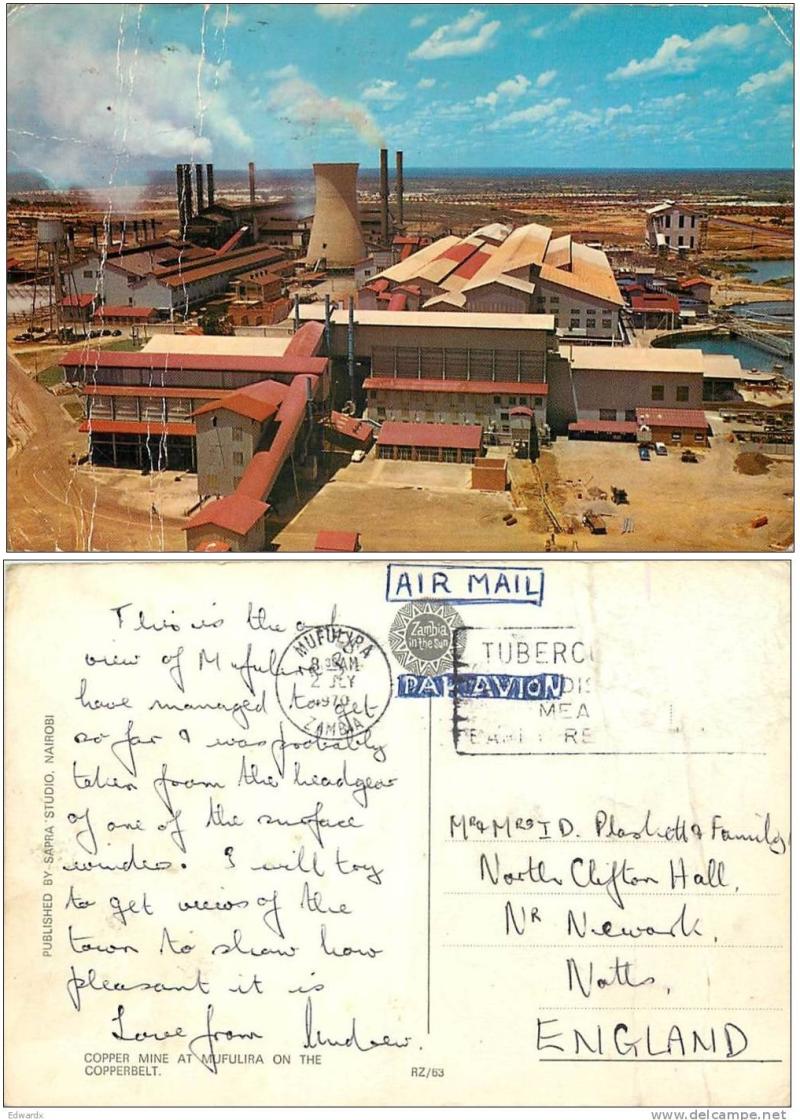 AIR MAIL
Zambia
in the Sun
PAR AVION
MUFULIRA
8 AM
2 JLY
1970
ZAMBIA
TUBERC
DIS
MEA
EARL RE
This is the only
view of Mufulira I
have managed to get
so far & was probably
taken from the headgear
of one of the surface
winders. I will try
to get views of the
town to show how
pleasant it is
Love from Andrew.
PUBLISHED BY SAPRA STUDIO, NAIROBI
COPPER MINE AT MUFULIRA ON THE
COPPERBELT.
RZ/63
Mr & Mrs I D. Plaskett & Family
North Clifton Hall,
Nr Newark,
Notts,
ENGLAND
Edwardx
delcampe.net